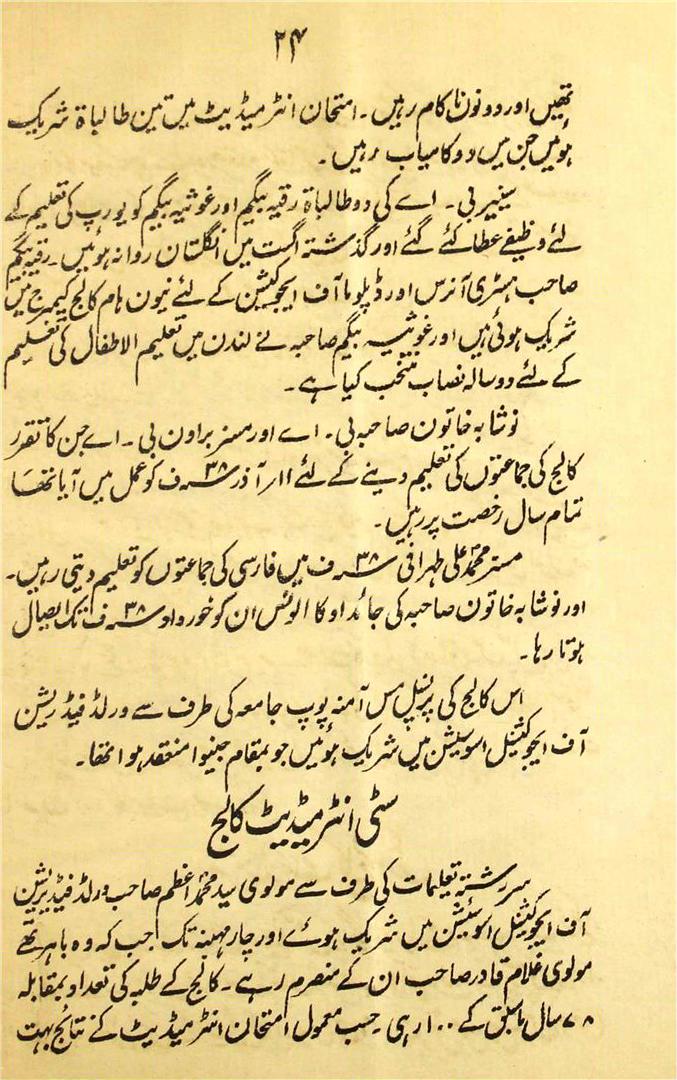 ۲۴
تھیں اور دونوں ناکام رہیں۔ امتحان انٹرمیڈیٹ میں تین طالباۃ شریک
ہوئیں جن میں دو کامیاب رہیں۔
سینیر بی۔ اے کی دو طالباۃ رقیہ بیگم اور غوثیہ بیگم کو یورپ کی تعلیم کے
لئے وظیفے عطا کئے گئے اور گذشتہ اگست میں انگلستان روانہ ہوئیں۔ رقیہ بیگم
صاحب ہسٹری آنرس اور ڈپلوما آف ایجوکیشن کے لئے نیون ہام کالج کیمبرج میں
شریک ہوئی ہیں اور غوثیہ بیگم صاحبہ نے لندن میں تعلیم الاطفال کی تعلیم
کے لئے دو سالہ نصاب منتخب کیا ہے۔
نوشابہ خاتون صاحبہ بی۔ اے اور مسز براون بی۔ اے جن کا تقرر
کالج کی جماعتوں کی تعلیم دینے کے لئے ۱۱؍ آذر ۳۸؁ف کو عمل میں آیا تھا
تمام سال رخصت پر رہیں۔
مسز محمد علی طہرانی ۳۸؁ف میں فارسی کی جماعتوں کو تعلیم دیتی رہیں۔
اور نوشابہ خاتون صاحبہ کی جائداد کا الونس ان کو خورداد ۳۸؁ف تک ایصال
ہوتا رہا۔
اس کالج کی پرنسپل مس آمنہ پوپ جامعہ کی طرف سے ورلڈ فیڈریشن
آف ایجوکیشنل اسوسیشن میں شریک ہوئیں جو بمقام جینوا منعقد ہوا تھا۔
سٹی انٹرمیڈیٹ کالج
سررشتہ تعلیمات کی طرف سے مولوی سید محمد اعظم صاحب ورلڈ فیڈریشن
آف ایجوکیشنل اسوسیشن میں شریک ہوئے اور چار مہینہ تک جب کہ وہ باہر تھے
مولوی غلام قادر صاحب ان کے منصرم رہے۔ کالج کے طلبہ کی تعداد بمقابلہ
۷۸ سال ماسبق کے ۱۰۰ رہی۔ حسب معمول امتحان انٹرمیڈیٹ کے نتائج بہت